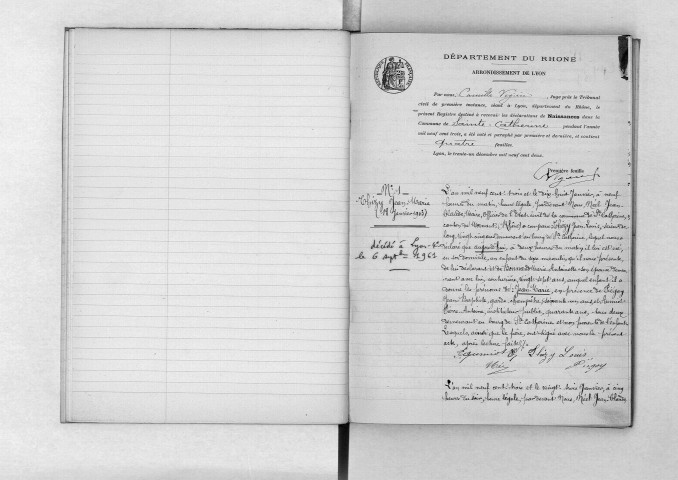 DÉPARTEMENT DU RHONE
ARRONDISSEMENT DE LYON
RÉPUBLIQUE FRANÇAISE
Par nous, Camille Juge près le Tribunal
civil de première instance, séant à Lyon, département du Rhône, le
présent Registre destiné à recevoir les déclarations de Naissances dans la
Commune de Sainte-Catherine pendant l'année
mil neuf cent trois, a été coté et paraphé par première et dernière, et contient
quatre feuilles.
Lyon, le trente-un décembre mil neuf cent deux.
Première feuille
N° 1
Thizy Jean-Marie
(18 Janvier 1903)
décédé à Lyon
le 6 1962
L'an mil neuf cent trois et le dix-huit Janvier, à neuf
heures du matin, heure légale, pardevant Nous, Jean
Claude, Maire, Officier de l'état civil de la commune de Ste Catherine,
canton de Mornant (Rhône) a comparu Thizy Jean Louis,
ans, demeurant au bourg de Ste Catherine, lequel nous a
déclaré que aujourd'hui, à deux heures du matin, il lui est né,
en son domicile, un enfant du sexe masculin, qu'il nous présente,
de lui déclarant et de Marie Antoinette son épouse,
avec lui, couturière, vingt-sept ans, auquel enfant il a
donné les prénoms de Jean Marie, en présence de
Jean Baptiste, garde champêtre, ans, et
Pierre Antoine, instituteur public, quarante ans, tous deux
demeurant au bourg de Ste Catherine et non parents de l'enfant.
Lesquels, ainsi que le père, ont signé avec nous le présent
acte, après lecture faite.
Thizy Louis
L'an mil neuf cent trois et le vingt-trois Janvier, à cinq
heures du soir, heure légale, par devant Nous, Jean-Claude